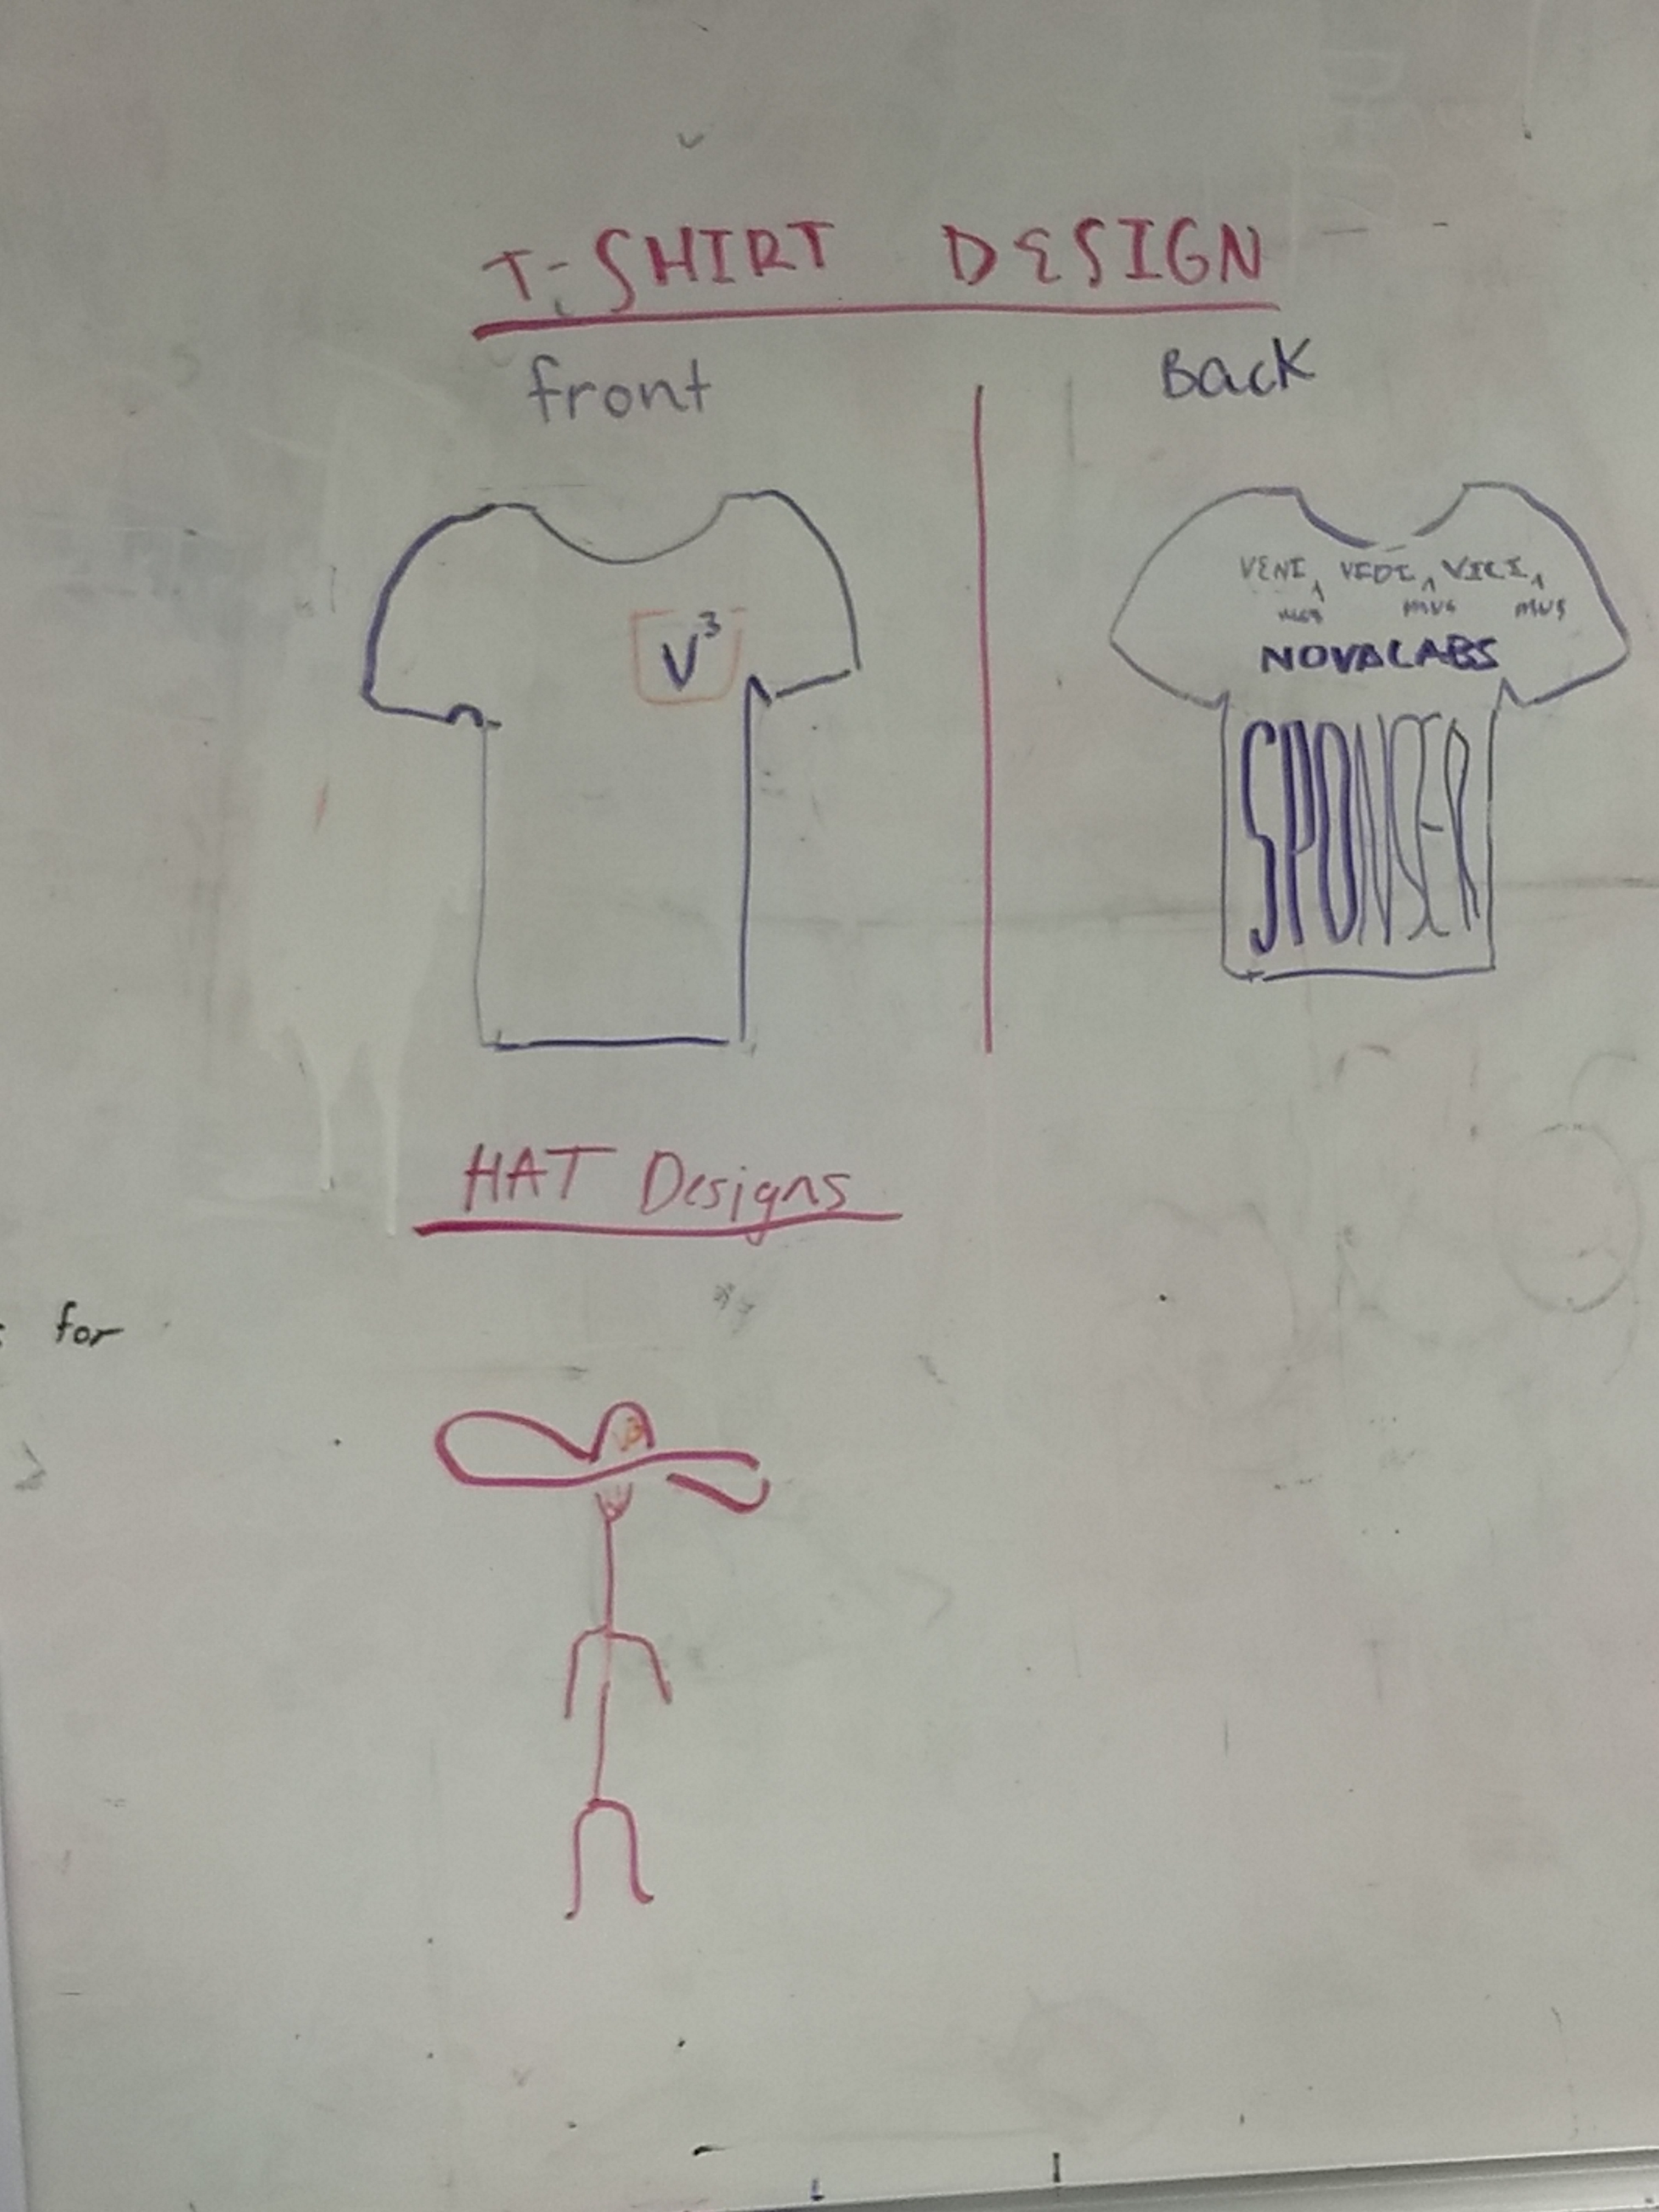 T-SHIRT DESIGN
front
Back
V³
VENI, VIDI, VICI,
MUS MUS
NOVALABS
SPONSER
HAT Designs
for
V³